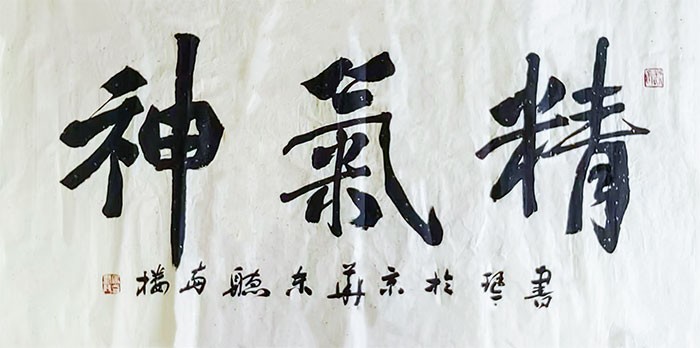 精氣神
書琴於京華东聽雨楼